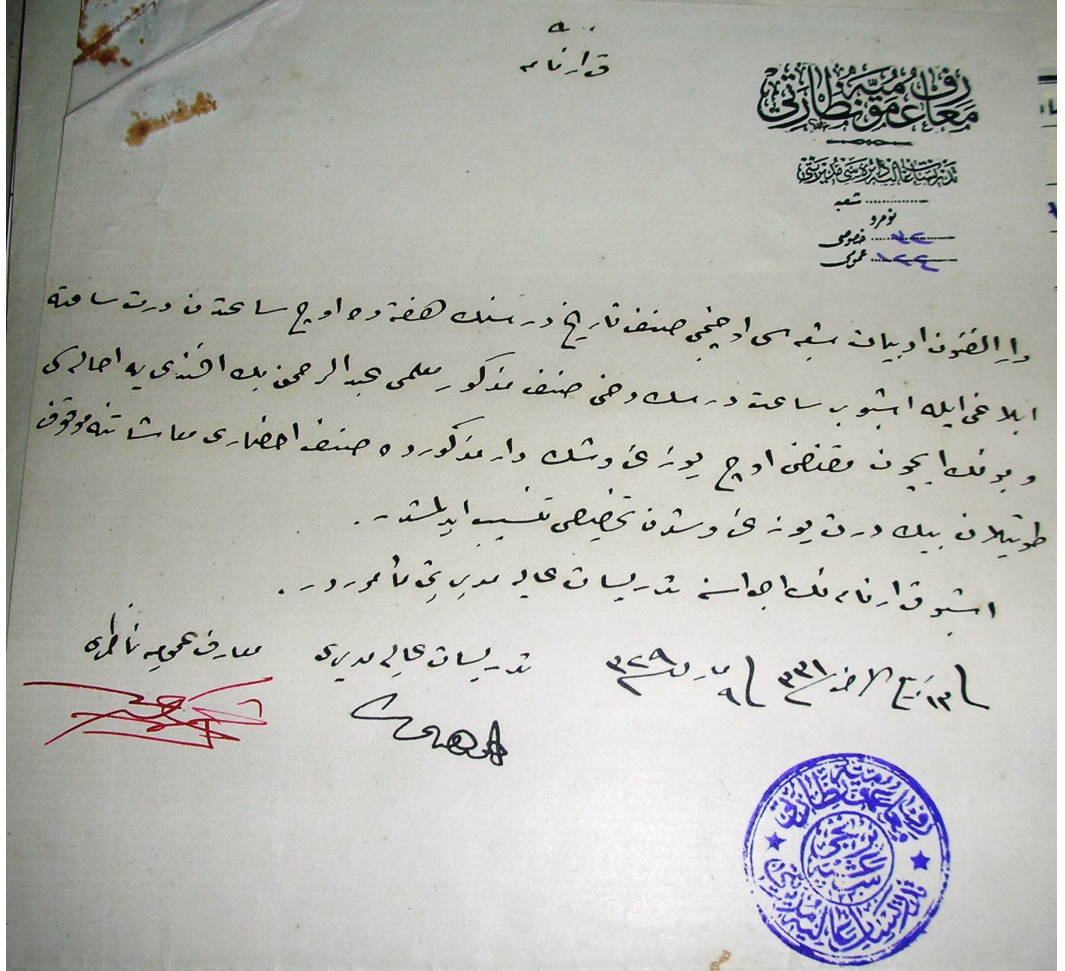 قرارنامه
معارف عمومیه نظارتی
تدریسات عالیه دائره سی مدیریتی
شعبه
نومرو
خصوصی ٧٢
عمومی ١٢٢٤
دار الفنون ادبیات شعبه سی اوچنجی صنف تاریخ درسنك هفته ده اوچ ساعتدن درت ساعته
ابلاغی ایله اشبو بر ساعت درسك دخی صنف مذكور معلمی عبد الرحمن بك افندی یه احاله سی
و بونك ایچون مقتضی اوچ یوز غروشك دار مذكورده صنف احضاری معاشاتنه موقوف
طوتیلان بیك درت یوز غروشدن تخصیصی تنسیب ایدلمشدر.
اشبو قرارنامه نك اجراسنه تدریسات عالیه مدیریتی مأموردر.
فی ١٣ ربیع الاخر ٣٣١ فی ٩ مارت ٣٢٩
تدریسات عالیه مدیری
معارف عمومیه ناظری
معارف عمومیه نظارتی
تدریسات عالیه مدیریتی
برنجی شعبه